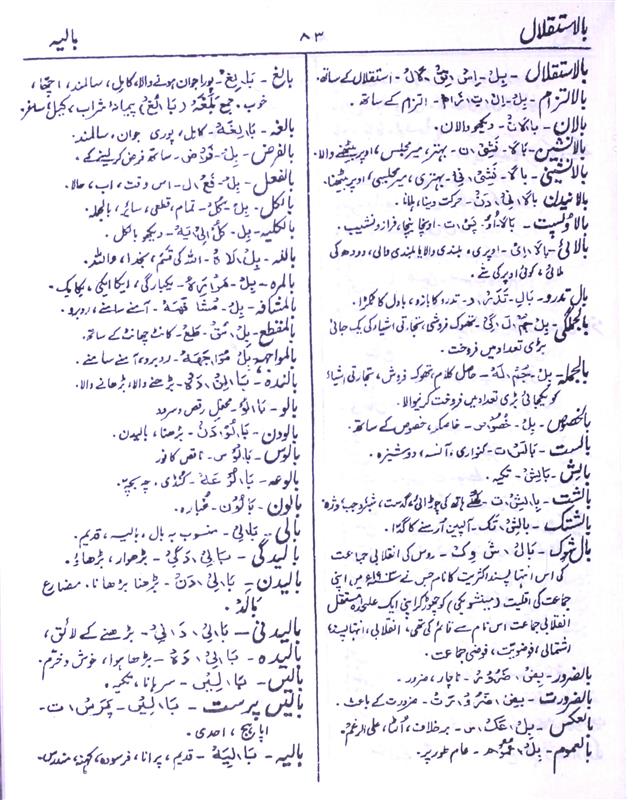 بالاستقلال ۸۳ بالیہ
بالاستقلال - بِل-اِس تِق لَال - استقلال کے ساتھ.
بالالتزام - بِل-اِل تِ زَام - التزام کے ساتھ.
بالان - بَالَان - دیکھو دالان.
بالانشین - بَالَا-نَشِین - بہتر، میر مجلس، اوپر بیٹھنے والا.
بالانشینی - بہتری، میر مجلسی، اوپر بیٹھنا.
بالانیدن - حرکت دینا، ہلانا.
بالاوپست - اونچا نیچا، فراز و نشیب.
بالائی - بَالَا اِی - اوپری، بلندی والا یا بلندی والی، دودھ کی
ملائی، کوئی اوپر کی شے.
بال تدرو - تدرو کا بازو، بادل کا ٹکڑا.
بالجملگی - تھوک فروشی، تجارتی اشیاء کی یک جائی
بڑی تعداد میں فروخت.
بالجملہ - حاصل کلام، تھوک فروش، تجارتی اشیاء
کو یکجائی بڑی تعداد میں فروخت کرنیوالا.
بالخصوص - بِل-خُصُوص - خاصکر، خصوص کے ساتھ.
بالست - کنواری، آنسہ، دوشیزہ.
بالش - بَالِش - تکیہ.
بالشت - ہاتھ کی چوڑائی، گدست، شبر، وجب، وژہ.
بالشتک - آلپین آرسنے کا گدا.
بال شوک - بَال-شِوِک - روس کی انقلابی جماعت
کی اس انتہا پسند اکثریت کا نام جس نے ۱۹۰۳ء میں اپنی
جماعت کی اقلیت (مینشویکی) کو چھوڑ کر اپنی ایک علیحدہ مستقل
انقلابی جماعت اس نام سے قائم کی تھی، انقلابی، انتہا پسند،
اشتمالی، فوضویت، فوضی جماعت.
بالضرور - ناچار، ضرور.
بالضرورت - ضرورت کے باعث.
بالعکس - بِل-عَکس - برخلاف، اُلٹا، علی الرغم.
بالعموم - بِل-عُمُوم - عام طور پر.
بالغ - بَالِغ - پورا جوان ہونے والا، کامل، سالمند، اچھا،
خوب. جمع بَلَغَہ (بَالِغ) پیمانۂ شراب، کیل، ساغر.
بالغہ - بَالِغَہ - کامل، پوری جوان، سالمند.
بالفرض - بِل-فَرض - ساتھ فرض کر لینے کے.
بالفعل - بِل-فِعل - اس وقت، اب، حالا.
بالکل - بِل-کُل - تمام، قطعی، سائر، بالجملہ.
بالکلیہ - بِل-کُل اِی یَہ - دیکھو بالکل.
باللہ - اللہ کی قسم، بخدا، واللہ.
بالمرہ - بِل-مَرَّہ - یکبارگی، ایکا ایکی، یکایک.
بالمشافہ - آمنے سامنے، روبرو.
بالمقطع - کانٹ چھانٹ کے ساتھ.
بالمواجہہ - بِل-مُوَاجَہَہ - روبرو، آمنے سامنے.
بالندہ - بڑھنے والا، بڑھانے والا.
بالو - بَالُو - محفل رقص و سرود
بالودن - بَالُودَن - بڑھنا، بالیدن.
بالوس - بَالُوس - ناقص کافور
بالوعہ - بَالُوعَہ - کُنڈی. چہ بچہ.
بالون - بَالُون - غبارہ.
بالی - بَالِی - منسوب بہ بال، بالیہ، قدیم.
بالیدگی - بَالِیدَگِی - بڑھوار، بڑھاؤ.
بالیدن - بَالِیدَن - بڑھنا بڑھانا. مضارع
بَالَد.
بالیدنی - بَالِیدَنِی - بڑھنے کے لائق،
بالیدہ - بَالِیدَہ - بڑھا ہوا، خوش و خرّم.
بالیں - بَالِیں - سرہانا، تکیہ.
بالیں پرست - بَالِیں-پَرَست -
اپاہج، احدی.
بالیہ - بَالِیَہ - قدیم، پرانا، فرسودہ، کہنہ، مندرس.